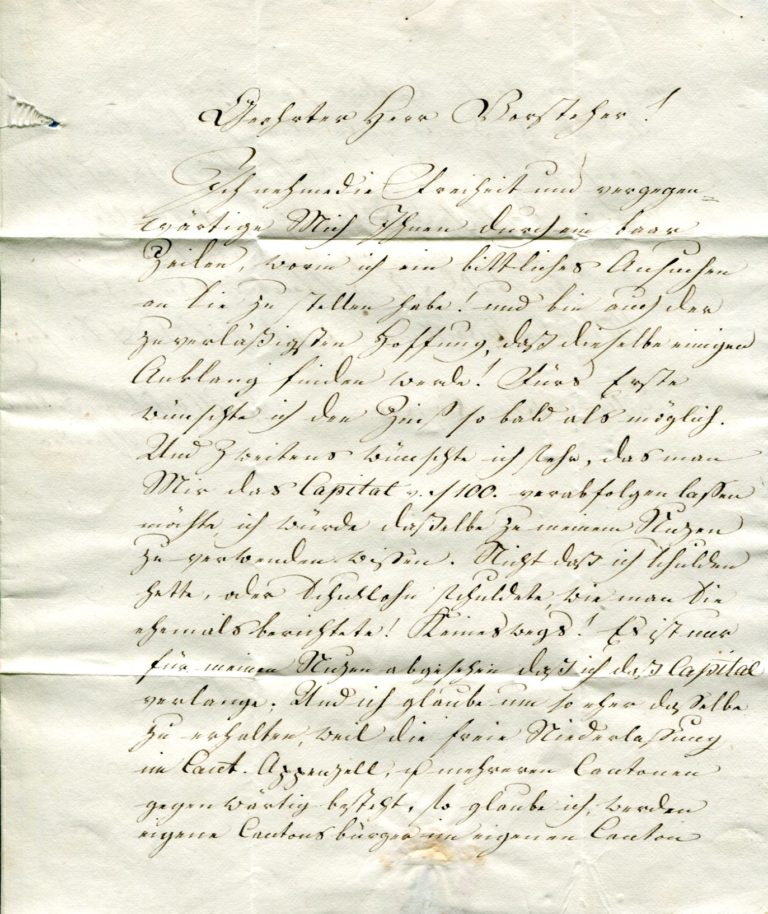 Geehrter Herr Vorsteher!
Ich nehme die Freiheit und vergegen=
wärtige Mich Ihnen durch ein baar
Zeilen, worin ich ein bittliches Ansuchen
an Sie zu stellen habe! und bin auch der
zuverläßigsten Hoffnung, daß dieselbe einigen
Anklang finden werde! Fürs Erste
wünschte ich den Zinß so bald als möglich.
Und Zweitens wünschte ich sehr, das man
Mir das Capital v. f 100. verabfolgen lassen
möchte, ich würde daßelbe zu meinem Nuzen
zu verwenden wissen. Nicht daß ich Schulden
hette, oder Schullohn schuldete, wie man Sie
ehemals berichtete! Keineswegs! Es ist nur
für meinen Nuzen abgesehen daß ich daß Capital
verlange. Und ich glaube um so eher dasselbe
zu erhalten, weil die freie Niederlaßung
im Cant. Appenzell, u mehreren Cantonen
gegenwärtig besteht, so glaube ich, werden
eigene Cantonsbürger im eigenen Canton